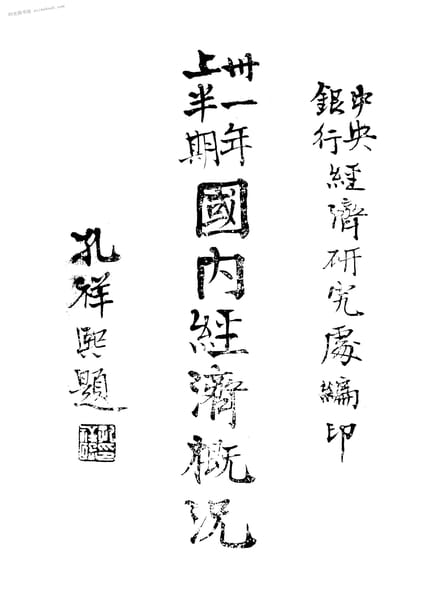 中央
銀行經濟研究處編印
卅一年
上半期國內經濟概況
孔祥熙題